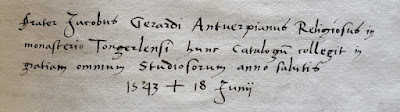 Frater Jacobus Gerardi Antverpianus Religiosus in
monasterio Tongerlensi hunc Catalogũ collegit in
gratiam omnium Studiosorum anno salutis
1543 + 18 Junij